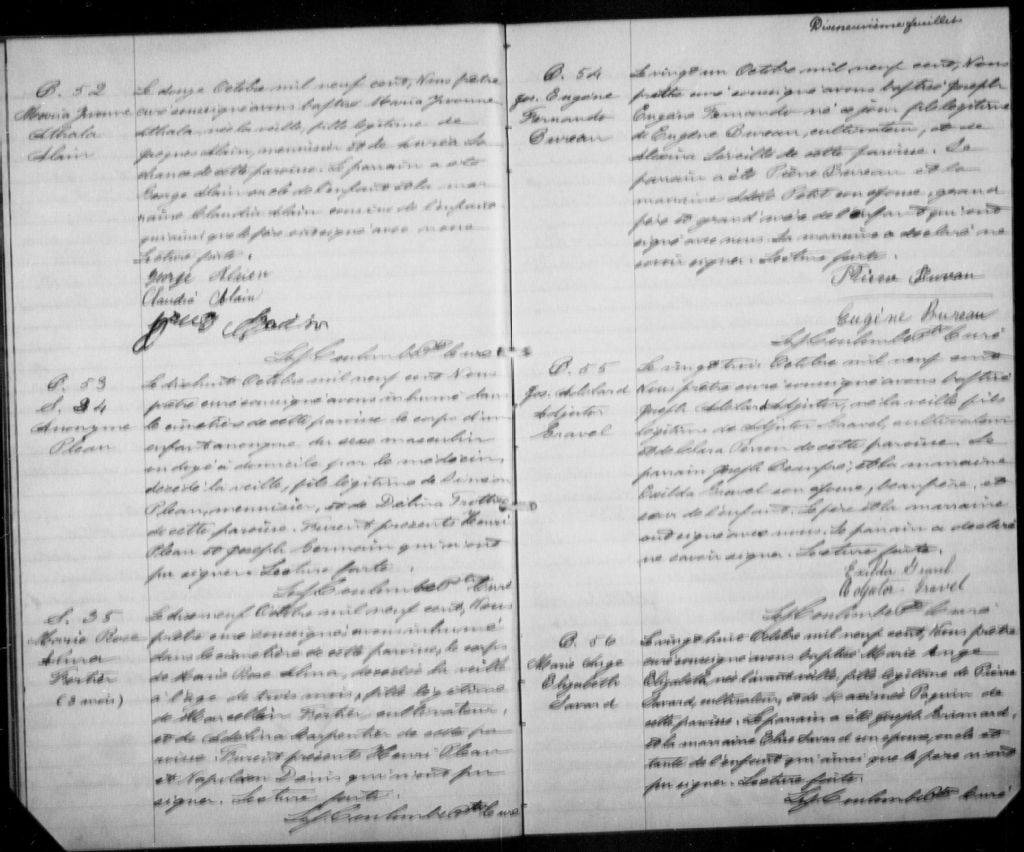 B. 52
Maria Yvonne
Athala
Alain
Le douze Octobre mil neuf cent, Nous prêtre
curé soussigné avons baptisé Maria Yvonne
Athala, née la veille, fille légitime de
Jacques Alain, menuisier et de
de cette paroisse. Le parrain a été
George Alain oncle de l'enfant et la mar
raine Claudia Alain cousine de l'enfant
qui ainsi que le père ont signé avec nous
Lecture faite.
George Alain
Claudia Alain
Ptre Curé
B. 53
S. 34
Anonyme
Plean
Le dix huit Octobre mil neuf cent Nous
prêtre curé soussigné avons inhumé dans
le cimetière de cette paroisse le corps d'un
enfant anonyme du sexe masculin
ondoyé à domicile par le médecin,
décédé la veille, fils légitime de Siméon
Plean, menuisier, et de Délina Trottier
de cette paroisse. Furent présents Henri
Plean et Joseph Germain qui n'ont
pu signer. Lecture faite.
Ptre Curé
S. 35
Marie Rose
Alma
Fortier
(3 mois)
Le dix neuf Octobre mil neuf cent, Nous
prêtre curé soussigné avons inhumé
dans le cimetière de cette paroisse, le corps
de Marie Rose Alma, décédée la veille
à l'âge de trois mois, fille légitime
de Marcellin Fortier, cultivateur,
et de Adelina Carpentier de cette pa
roisse. Furent présents Henri Plean
et Napoléon Denis qui n'ont pu
signer. Lecture faite.
Ptre Curé
Dixneuvième feuillet
B. 54
Jos. Eugène
Fernando
Bureau
Le vingt un Octobre mil neuf cent, Nous
prêtre curé soussigné avons baptisé Joseph
Eugène Fernando né ce jour fils légitime
de Eugène Bureau, cultivateur, et de
de cette paroisse. Le
parrain a été Pierre Bureau et la
marraine Adèle Petit son épouse, grand
père et grand'mère de l'enfant qui ont
signé avec nous. La marraine a déclaré ne
savoir signer. Lecture faite.
Pierre Bureau
Eugène Bureau
Ptre Curé
B. 55
Jos. Adélard
Adjutor
Gravel
Le vingt trois Octobre mil neuf cent
Nous prêtre curé soussigné avons baptisé
Joseph Adélard Adjutor, né la veille fils
légitime de Adjutor Gravel, cultivateur
et de Clara Perron de cette paroisse. Le
parrain Joseph Beaupré, et la marraine
Exilda Gravel son épouse, beau père, et
sœur de l'enfant. Le père et la marraine
ont signé avec nous. Le parrain a déclaré
ne savoir signer. Lecture faite.
Exilda Gravel
Adjutor Gravel
Ptre Curé
B. 56
Marie Ange
Elizabeth
Savard
Le vingt huit Octobre mil neuf cent, Nous prêtre
curé soussigné avons baptisé Marie Ange
Elizabeth, née l'avant veille, fille légitime de Pierre
Savard, cultivateur, et de Paquin de
cette paroisse. Le parrain a été Joseph
et la marraine Elise Savard son épouse, oncle et
tante de l'enfant qui ainsi que le père n'ont
pu signer. Lecture faite.
Ptre Curé